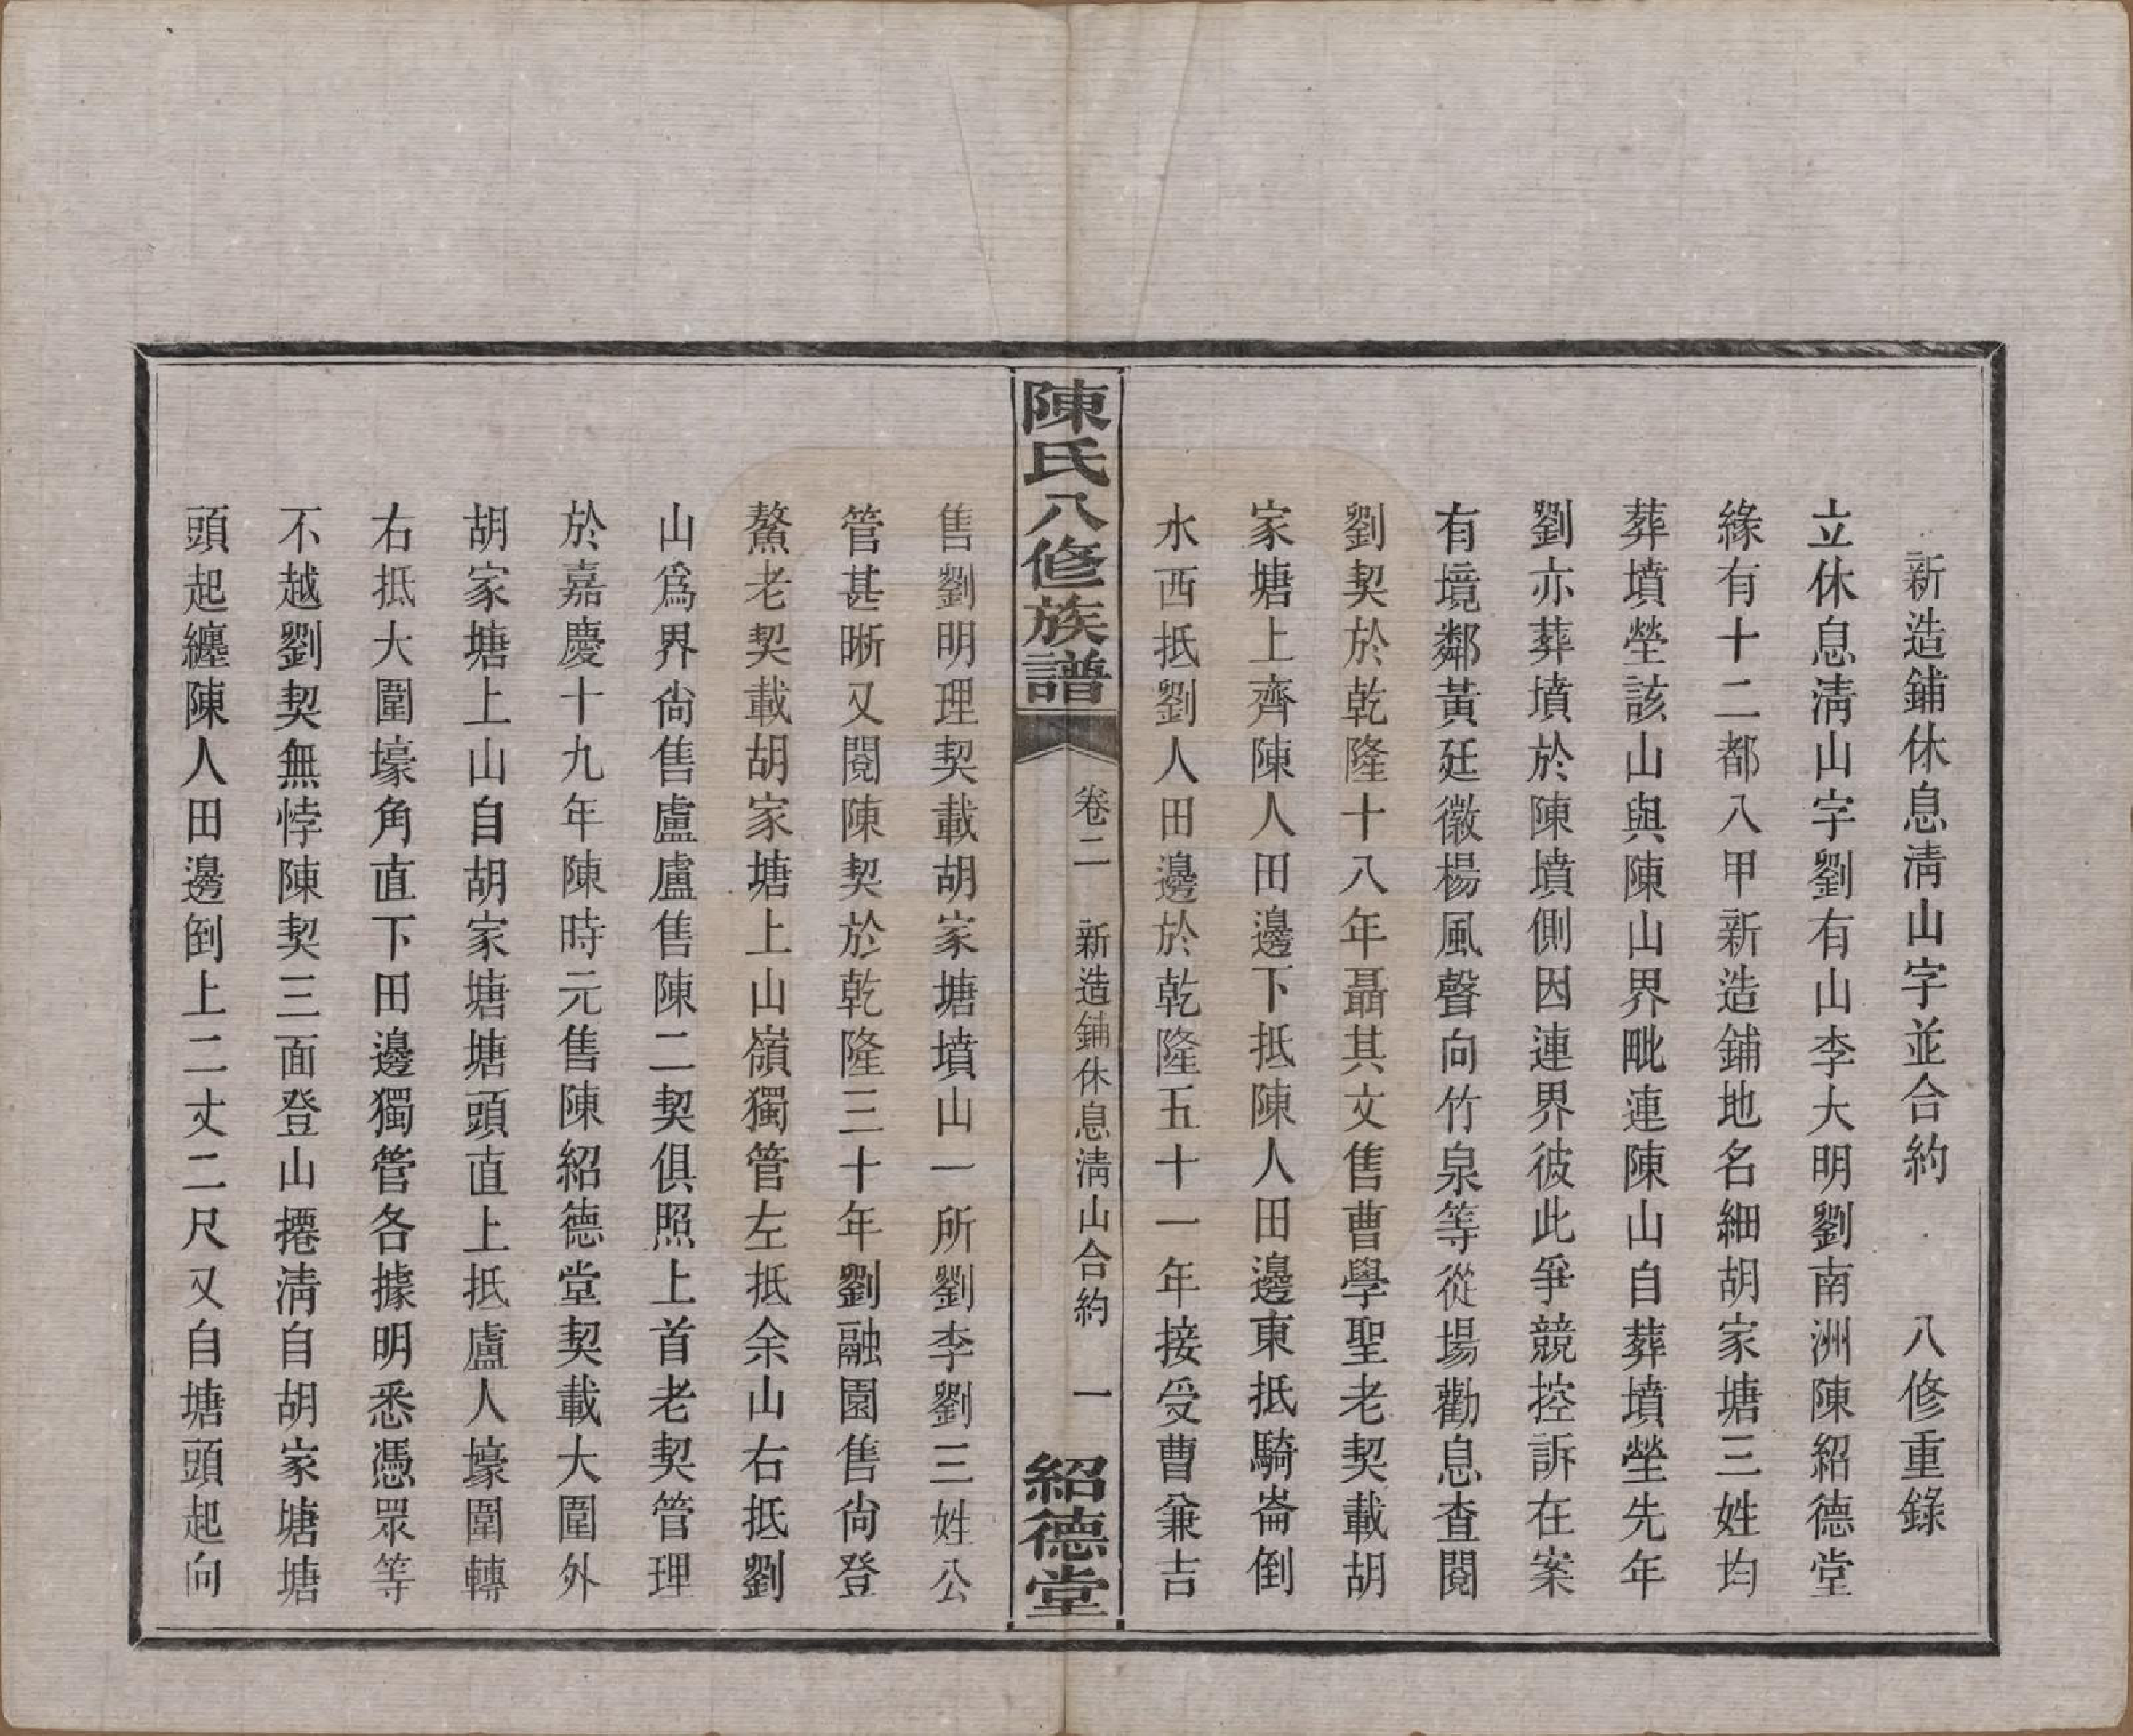 新造鋪休息淸山字並合約　八修重錄
立休息淸山字劉有山李大明劉南洲陳紹德堂
緣有十二都八甲新造鋪地名細胡家塘三姓均
葬墳塋該山與陳山界毗連陳山自葬墳塋先年
劉亦葬墳於陳墳側因連界彼此爭競控訴在案
有境鄰黃廷徽楊風聲向竹泉等從場勸息查閱
劉契於乾隆十八年聶其文售曹學聖老契載胡
家塘上齊陳人田邊下抵陳人田邊東抵騎崙倒
水西抵劉人田邊於乾隆五十一年接受曹兼吉
陳氏八修族譜
卷二　新造鋪休息淸山合約　一
紹德堂
售劉明理契載胡家塘墳山一所劉李劉三姓公
管甚晰又閱陳契於乾隆三十年劉融園售尙登
鰲老契載胡家塘上山嶺獨管左抵余山右抵劉
山爲界尙售盧盧售陳二契俱照上首老契管理
於嘉慶十九年陳時元售陳紹德堂契載大圍外
胡家塘上山自胡家塘塘頭直上抵盧人壕圍轉
右抵大圍壕角直下田邊獨管各據明悉憑眾等
不越劉契無悖陳契三面登山捲淸自胡家塘塘
頭起纏陳人田邊倒上二丈二尺又自塘頭起向